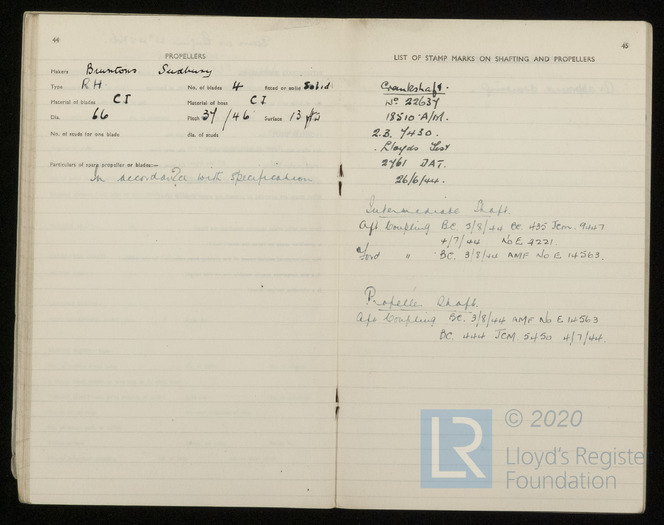 44
PROPELLERS
Makers Bruntons Sudbury
Type RH No. of blades 4 fitted or solid Solid
Material of blades CI Material of boss CI
Dia. 66 Pitch 37/46 Surface 13
No. of studs for one blade dia. of studs
Particulars of spare propeller or blades:—
In accordance with specification
45
LIST OF STAMP MARKS ON SHAFTING AND PROPELLERS
Crankshaft.
No 22637
18510 A/M.
2.B. 7430.
Lloyds Test
2761 DAT.
26/6/44.
Intermediate Shaft.
Aft Coupling BC. 3/8/44 BC. 435 JCM. 9447
4/7/44 No E 4221
ford " BC. 3/8/44 AMF No E 14563.
Propeller Shaft.
Aft Coupling BC. 3/8/44 AMF No E 14563
BC. 444 JCM. 5450 4/7/44.
LR
© 2020
Lloyd's Register
Foundation